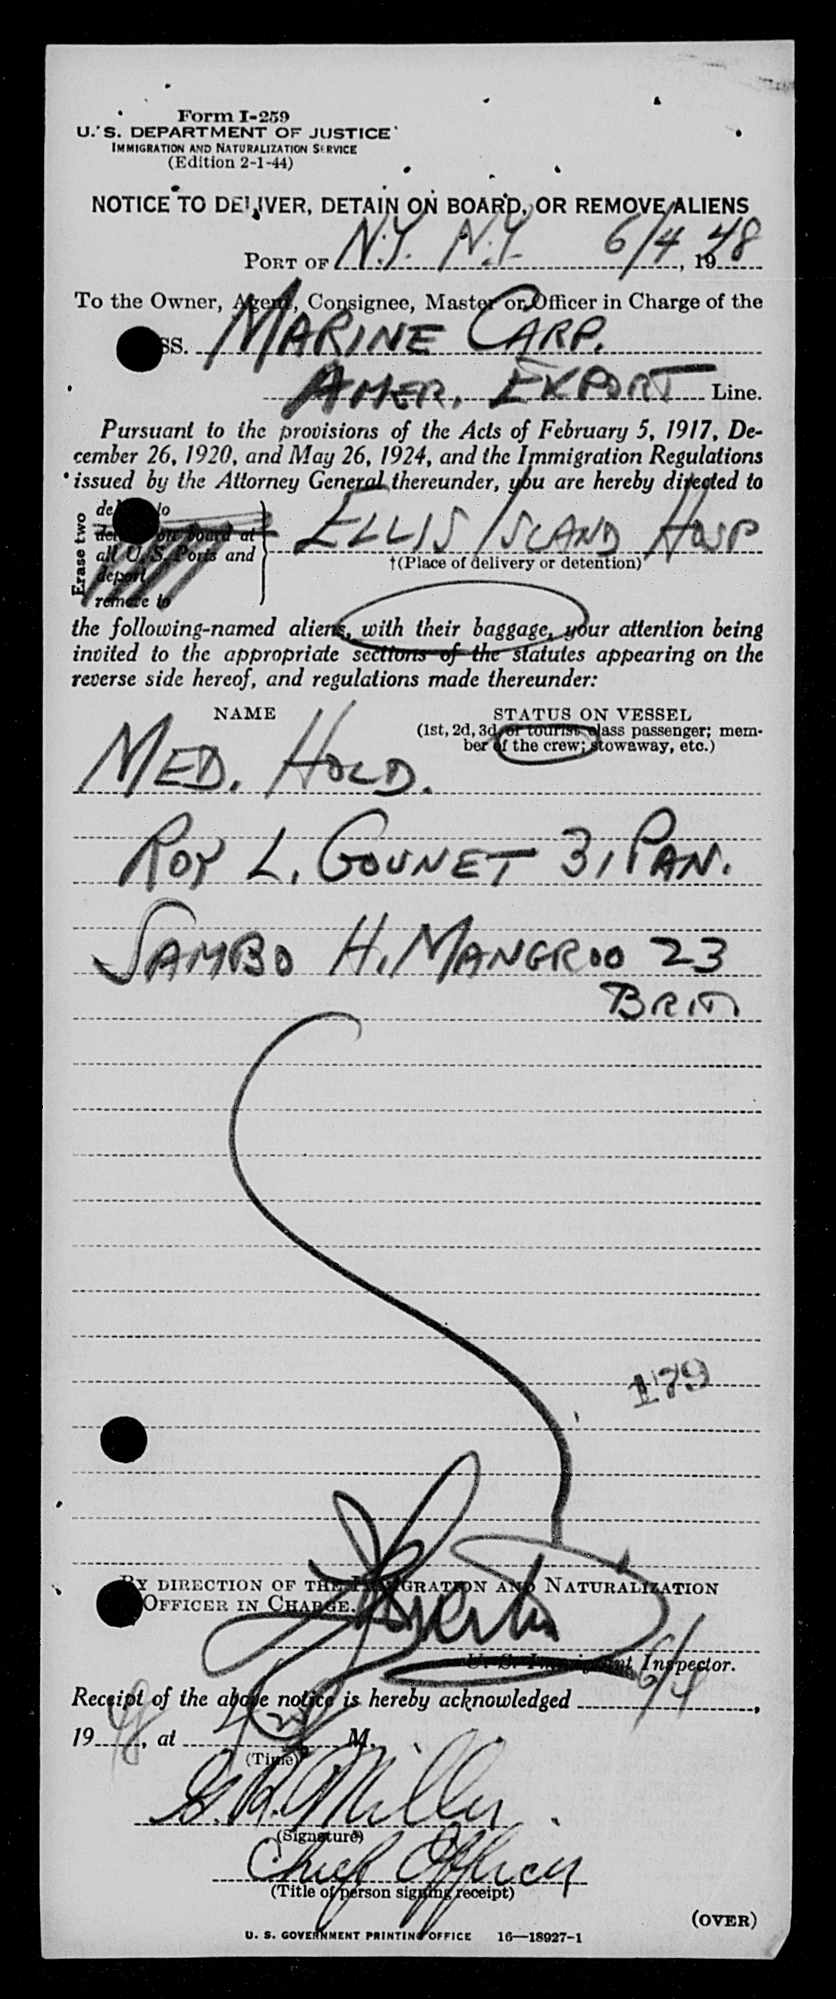 Form I-259
U. S. DEPARTMENT OF JUSTICE
IMMIGRATION AND NATURALIZATION SERVICE
(Edition 2-1-44)
NOTICE TO DELIVER, DETAIN ON BOARD, OR REMOVE ALIENS
PORT OF N.Y. N.Y. 6/4, 1948
To the Owner, Agent, Consignee, Master or Officer in Charge of the
SS. MARINE CARP.
AMER. EXPORT Line.
Pursuant to the provisions of the Acts of February 5, 1917, De-
cember 26, 1920, and May 26, 1924, and the Immigration Regulations
issued by the Attorney General thereunder, you are hereby directed to
Erase two
deliver to
detain on board at
all U. S. Ports and
deport
remove to
ELLIS ISLAND HOSP
†(Place of delivery or detention)
the following-named aliens, with their baggage, your attention being
invited to the appropriate sections of the statutes appearing on the
reverse side hereof, and regulations made thereunder:
NAME STATUS ON VESSEL
(1st, 2d, 3d, or tourist class passenger; mem-
ber of the crew; stowaway, etc.)
MED. HOLD.
ROY L. GOUNET 31 PAN.
SAMBO H. MANGROO 23
BRIT
179
BY DIRECTION OF THE IMMIGRATION AND NATURALIZATION
OFFICER IN CHARGE.
U. S. Immigrant Inspector.
Receipt of the above notice is hereby acknowledged 6/4,
19 , at M.
(Time)
G. R. Miller
(Signature)
Chief Officer
(Title of person signing receipt)
(OVER)
U. S. GOVERNMENT PRINTING OFFICE 16—18927-1